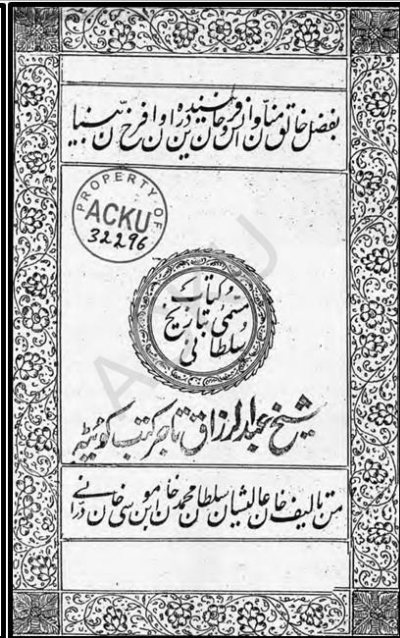 بفضل خالق منان و آفریننده انس و جان درین اوان فرخ بنیان
PROPERTY OF
ACKU
32296
کتاب
مسمی بتاریخ
سلطانی
شیخ عبدالرزاق تاجر کتب کوئٹہ
من تالیف خان عالیشان سلطان محمد خان ابن موسی خان درانی
ACKU